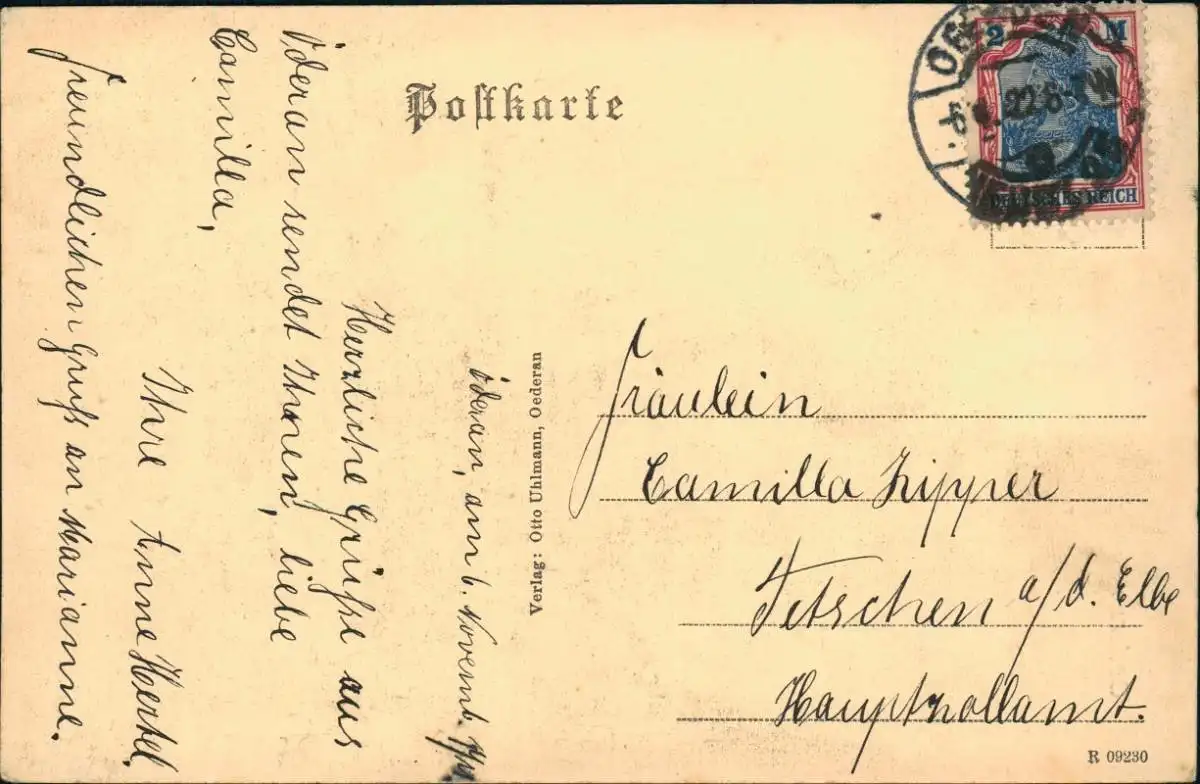 Postkarte
2 M
DEUTSCHES REICH
Öderan, am 6. Novemb.
Herzliche Grüße aus
Öderan sendet Ihnen, liebe
Camilla,
Ihre Anne Hertel.
Freundlichen Gruß an Marianne.
Verlag: Otto Uhlmann, Oederan
Fräulein
Camilla Zipper
Tetschen a/d. Elbe
Hauptzollamt.
R 09230